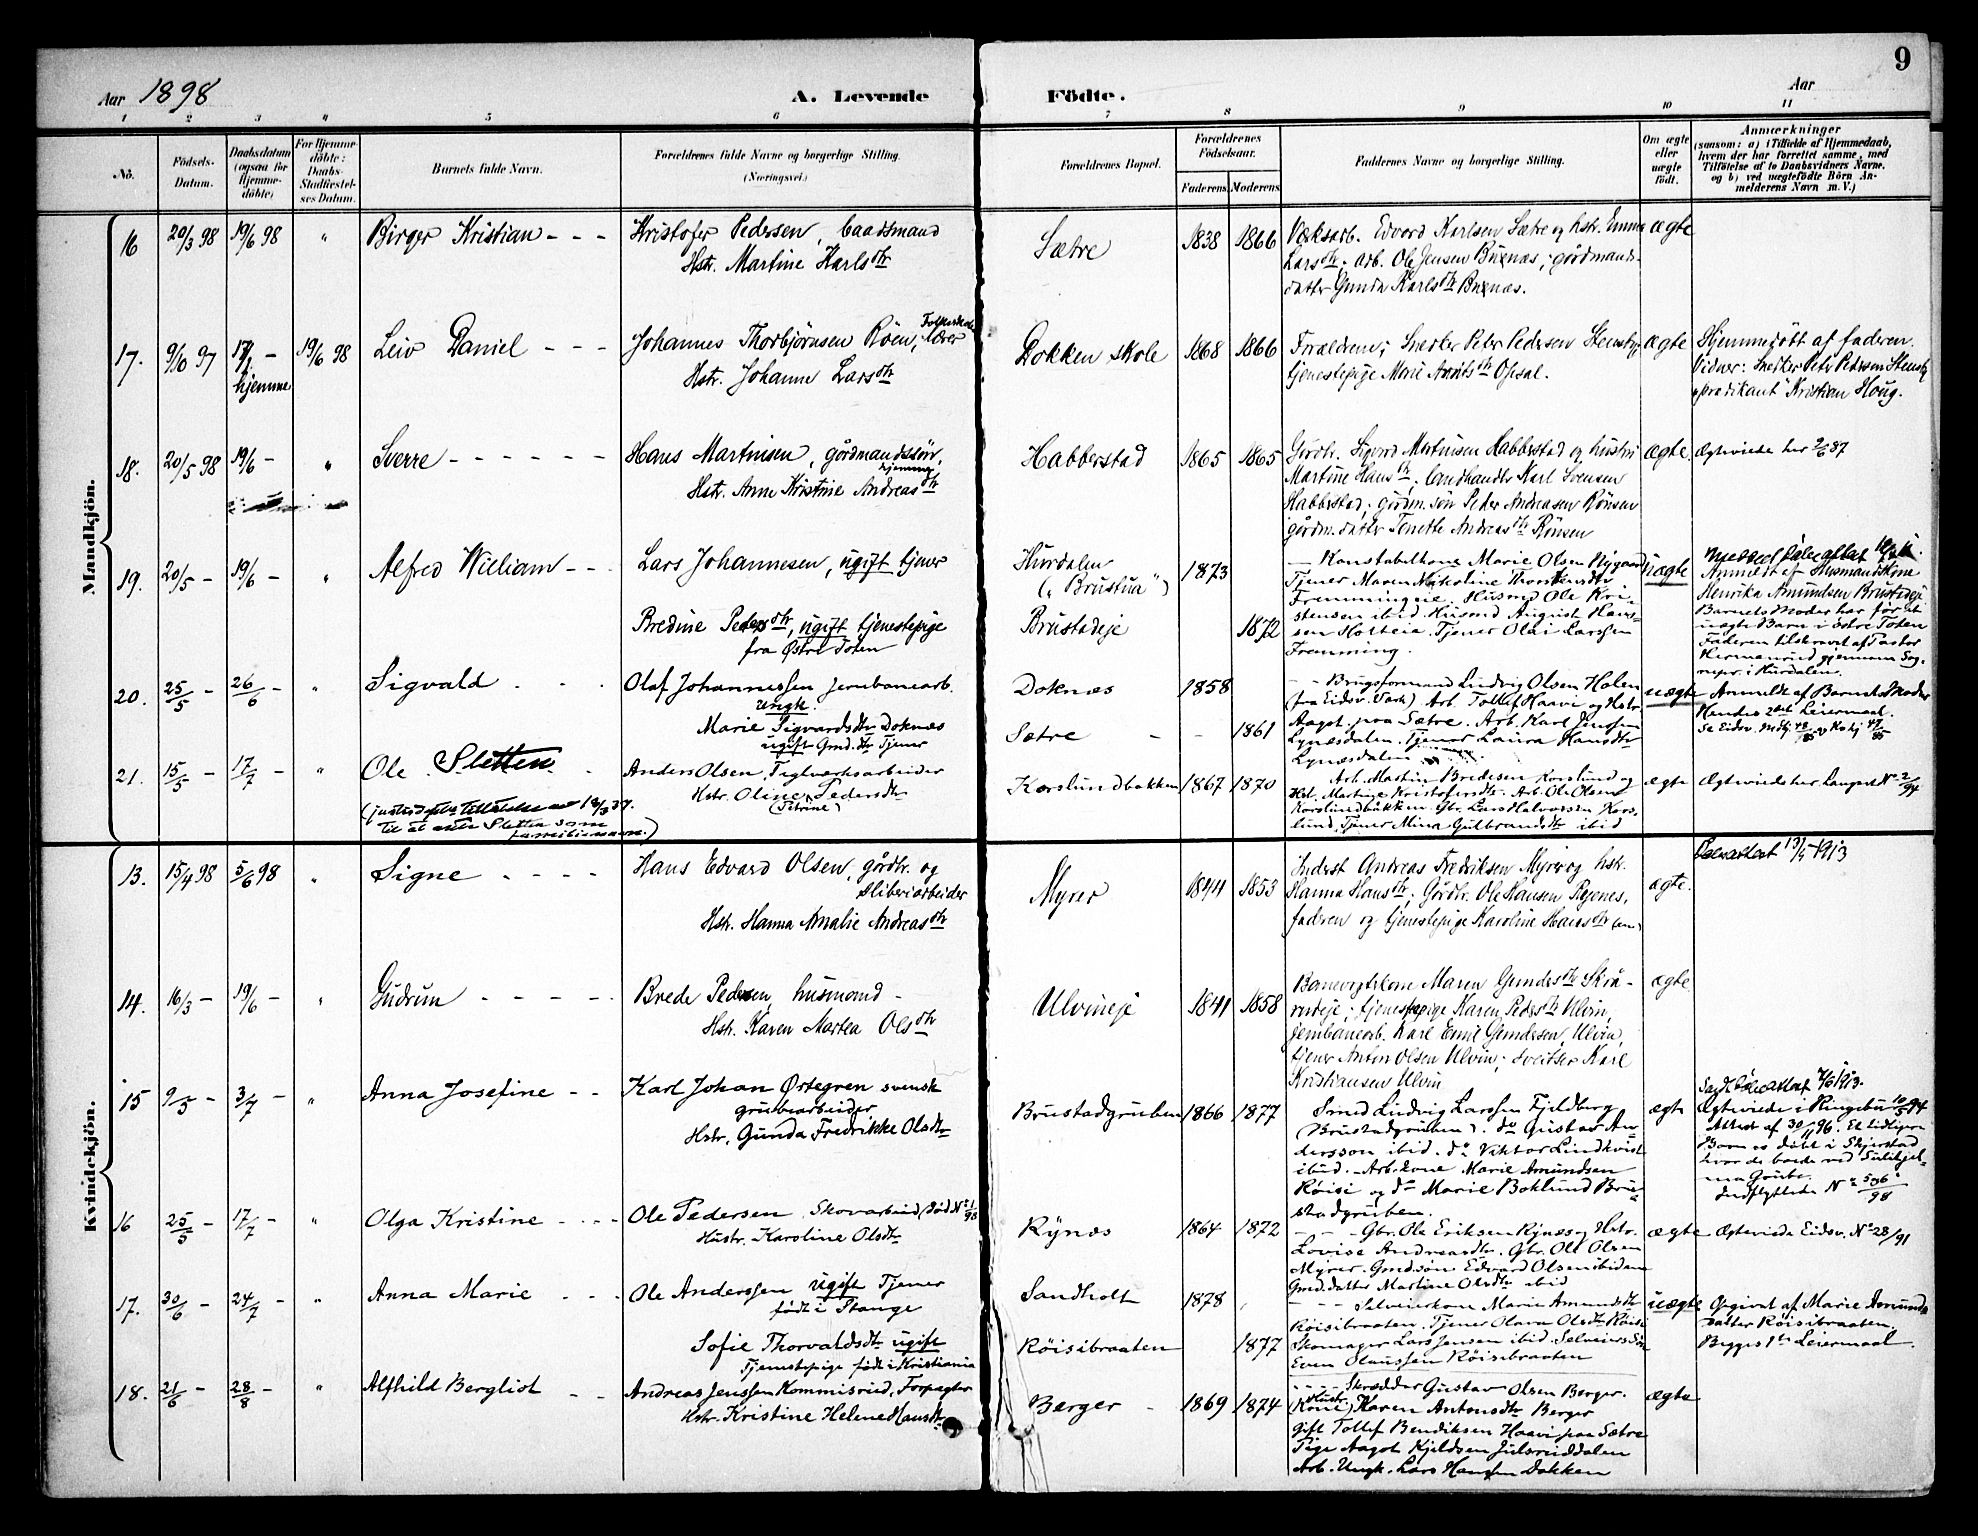 9
Aar 1898
A. Levende
Födte.
Aar
1 2 3 4 5 6 7 8 9 10 11
No.
Födsels-Datum.
Daabsdatum (ogsaa for Hjemme-döbte)
For Hjemme-döbte: Daabs-Stadfæstel-ses Datum.
Barnets fulde Navn.
Forældrenes fulde Navne og borgerlige Stilling.
(Næringsvei.)
Forældrenes Bopæl.
Forældrenes Födselsaar.
Faderens Moderens
Faddernes Navne og borgerlige Stilling.
Om ægte eller uægte födt.
Anmærkninger
(saasom: a) i Tilfælde af Hjemmedaab,
hvem der har forrettet samme, med
Tilföielse af to Daabsvidners Navne.
og b) ved uægtefödte Börn An-
melderens Navn m. V.)
Mandkjön.
16 20/3 98 19/6 98 " Birger Kristian - - -
Kristofer Pedersen, baadsmand
Hstr. Martine Karlsdtr
Sætre 1838 1866
Værksarb. Edvard Karlsen Sætre og hstr. Emma
Larsdtr. arb. Ole Jensen Buxnæs, gårdmands-
datter Gunda Karlsdtr Buxnæs.
ægte
17. 9/10 97 hjemme 19/6 98 Leiv Daniel - - -
Johannes Thorbjörnsen Röen, Folkeskole
lærer
Hstr. Johanne Larsdtr
Dokken skole 1868 1866
Forældrene; Snedker Peter Pedersen Stensby,
tjenestepige Marie Opsal.
ægte
Hjemmedöbt af faderen.
Vidner: Snedker Peter Pedersen Stensby
"prædikant" Kristian Houg.
18. 20/5 98 19/6 - " Sverre - - - - - -
Hans Martinsen, gårdmandssön,
Hstr. Anne Kristine Andreasdtr
Habberstad 1865 1865
Gårdbr. Sigvard Martinsen Habberstad og hustru
Martine Hansdtr, landhandler Karl Svensen
Habberstad, gårdm. sön Peder Andreasen Rönsen
gårdm. datter Tenette Andreasdtr Rönsen
ægte.
Ægteviede her 2/6 87
19. 20/5 - 19/6 - " Alfred William - - -
Lars Johannesen, ugift tjener
Bredine Pedersdtr, ugift tjenestepige
fra Östre Toten
Hurdalen
("Brustua")
Brustadeje
1873
1872
- Konstabelkone Marie Olsen Nygaard
Tjener Maren Nikoline Thorstensdtr
Fremmingeie. Husmd Ole Kri-
stensen ibid. Husmd August Han-
sen Holteeia. Tjener Olai Larssen
Fremming.
uægte
Anmeldt af Husmandskone
Henrika Amundsen Brustadeje
Barnets Moder har för et
uægte Barn i östre Toten
Faderen tilskrevet af Pastor
Hermanrud gjennem Sog-
nepr. i Hurdalen.
20. 25/5 - 26/6 - " Sigvald - - -
Olaf Johannessen jernbanearb.
ungk.
Marie Sigvardsdtr Doknæs
ugift Gmd.dtr Tjener
Doknæs 1858
Sætre - - 1861
- - Brugsformand Ludvig Olsen Holen
(fra Eidsv. Værk) Arb. Tollef Haavi og Hstr.
Aagot paa Sætre. Arb. Karl Jenssen
Lynæsdalen. Tjener Laura Hansdtr
Lynæsdalen
uægte
Anmeldt af Barnets Moder
Hendes 2det Leiermaal.
21. 15/5 - 17/7 - " Ole Sletten
(Justisdepts tillatelse av 18/3 37.
til at anta Sletten som
familienavn.)
Anders Olsen, Teglværksarbeider
Hstr. Oline Pedersdtr
(Petrine)
Korslundbakken 1867 1870
Arb. Martin Bredesen Korslund og
Hst. Martine Kristofersdtr. Arb. Ole Olsen
Korslundbakken. Gbr. Lars Halvorsen Kors-
lund. Tjener Mina Gulbrandsdtr ibid
ægte
Ægteviede her Langset No 2/94
Kvindekjön.
13. 15/4 98 5/6 98 " Signe - - - -
Hans Edvard Olsen, gårdbr. og
sliberiarbeider
Hstr. Hanna Amalie Andreasdtr
Myrer 1844 1853
Inderst Andreas Fredriksen Myrer og hstr.
Hanna Hansdtr; Gårdbr. Ole Hansen Rejenes,
faderen og tjenestepige Karoline Hansdtr
ægte.
Daabsattest 13/4 1913
14. 16/3 - 19/6 - " Gudrun - - - - -
Brede Pedersen, husmand -
Hstr. Karen Martea Olsdtr
Ulvineje 1841 1858
Banevogterkone Maren Gundesdtr Skrå-
rudeje; tjenestepige Karen Pedersdtr Ulvin,
jernbanearb. Karl Emil Gundesen, Ulvin,
tjener Anton Olsen Ulvin; sveitser Karl
Kristiansen Ulvin
ægte
15 9/5 - 3/7 - " Anna Josefine - -
Karl Johan Örtegren svensk
grubearbeider
Hstr. Gunda Fredrikke Olsdtr
Brustadgruben 1866 1877
Smed Ludvig Larssen Fjeldberg
(Brustadgruben). do Gustav An-
dersson ibid. do Viktor Lindkvist
ibid. Arb. kone Marie Amundsen
Röisi og do Marie Boklund Bru-
stadgruben.
ægte
Ægteviede i Ringebu 10/5 94
Attest af 30/11 96. Et tidligere
Barn er döbt i Skjerstad
hvor de boede ved Sulitjel-
ma Grube
Indflyttede No 506/98
16 25/5 - 17/7 - " Olga Kristine - - - -
Ole Pedersen Skovarbeid. (Död No 1/98
Hustr. Karoline Olsdtr
Rynæs 1864 1872
- - Gbr. Ole Eriksen Rynæs og Hstr.
Lovise Andreasdtr. Gbr. Ole Olsen
Myrer. Gmd.sön Edvard Olsen ibidem
Gmd.datter Martine Olsdtr ibid
ægte
Ægteviede Eidsv. No 28/91
17. 30/6 - 24/7 - " Anna Marie - - -
Ole Anderssen ugift Tjener
födt i Stange
Sofie Thorvaldsdtr ugift
Tjenestepige födt i Kristiania
Sandholt 1878
Röisibraaten 1877
- - - Selveierkone Marie Amundsdtr
Röisibraaten. Tjener Olava Olsdtr Röisi
Skomager Lars Jensen ibid. Selveiers Sön
Even Olaussen Röisibraaten
uægte
Opgivet af Marie Amunds-
datter Röisibraaten.
Begges 1ste Leiermaal.
18. 21/6 - 28/8 - " Alfhild Bergliot - -
Andreas Jenssen Kommisrud, Forpagter
Hstr. Kristine Helene Hansdtr
Berger - 1869 1874
- - - - Skrædder Gustav Olsen Berger.
(Hustr. Kone) Karen Antonsdtr Berger
Gift Tollef Bendiksen Haavi paa Sætre
Pige Aagot Kjeldsen Julsruddalen
Arb. Ungk. Lars Hansen Dokken
ægte